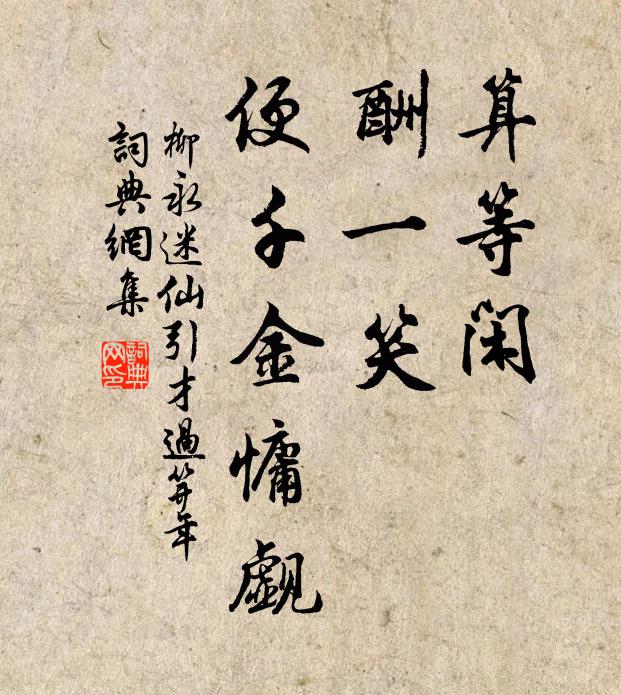 算等閑
酬一笑
便千金慵覷
柳永迷仙引才過笄年
詞典網集
詞典
网印